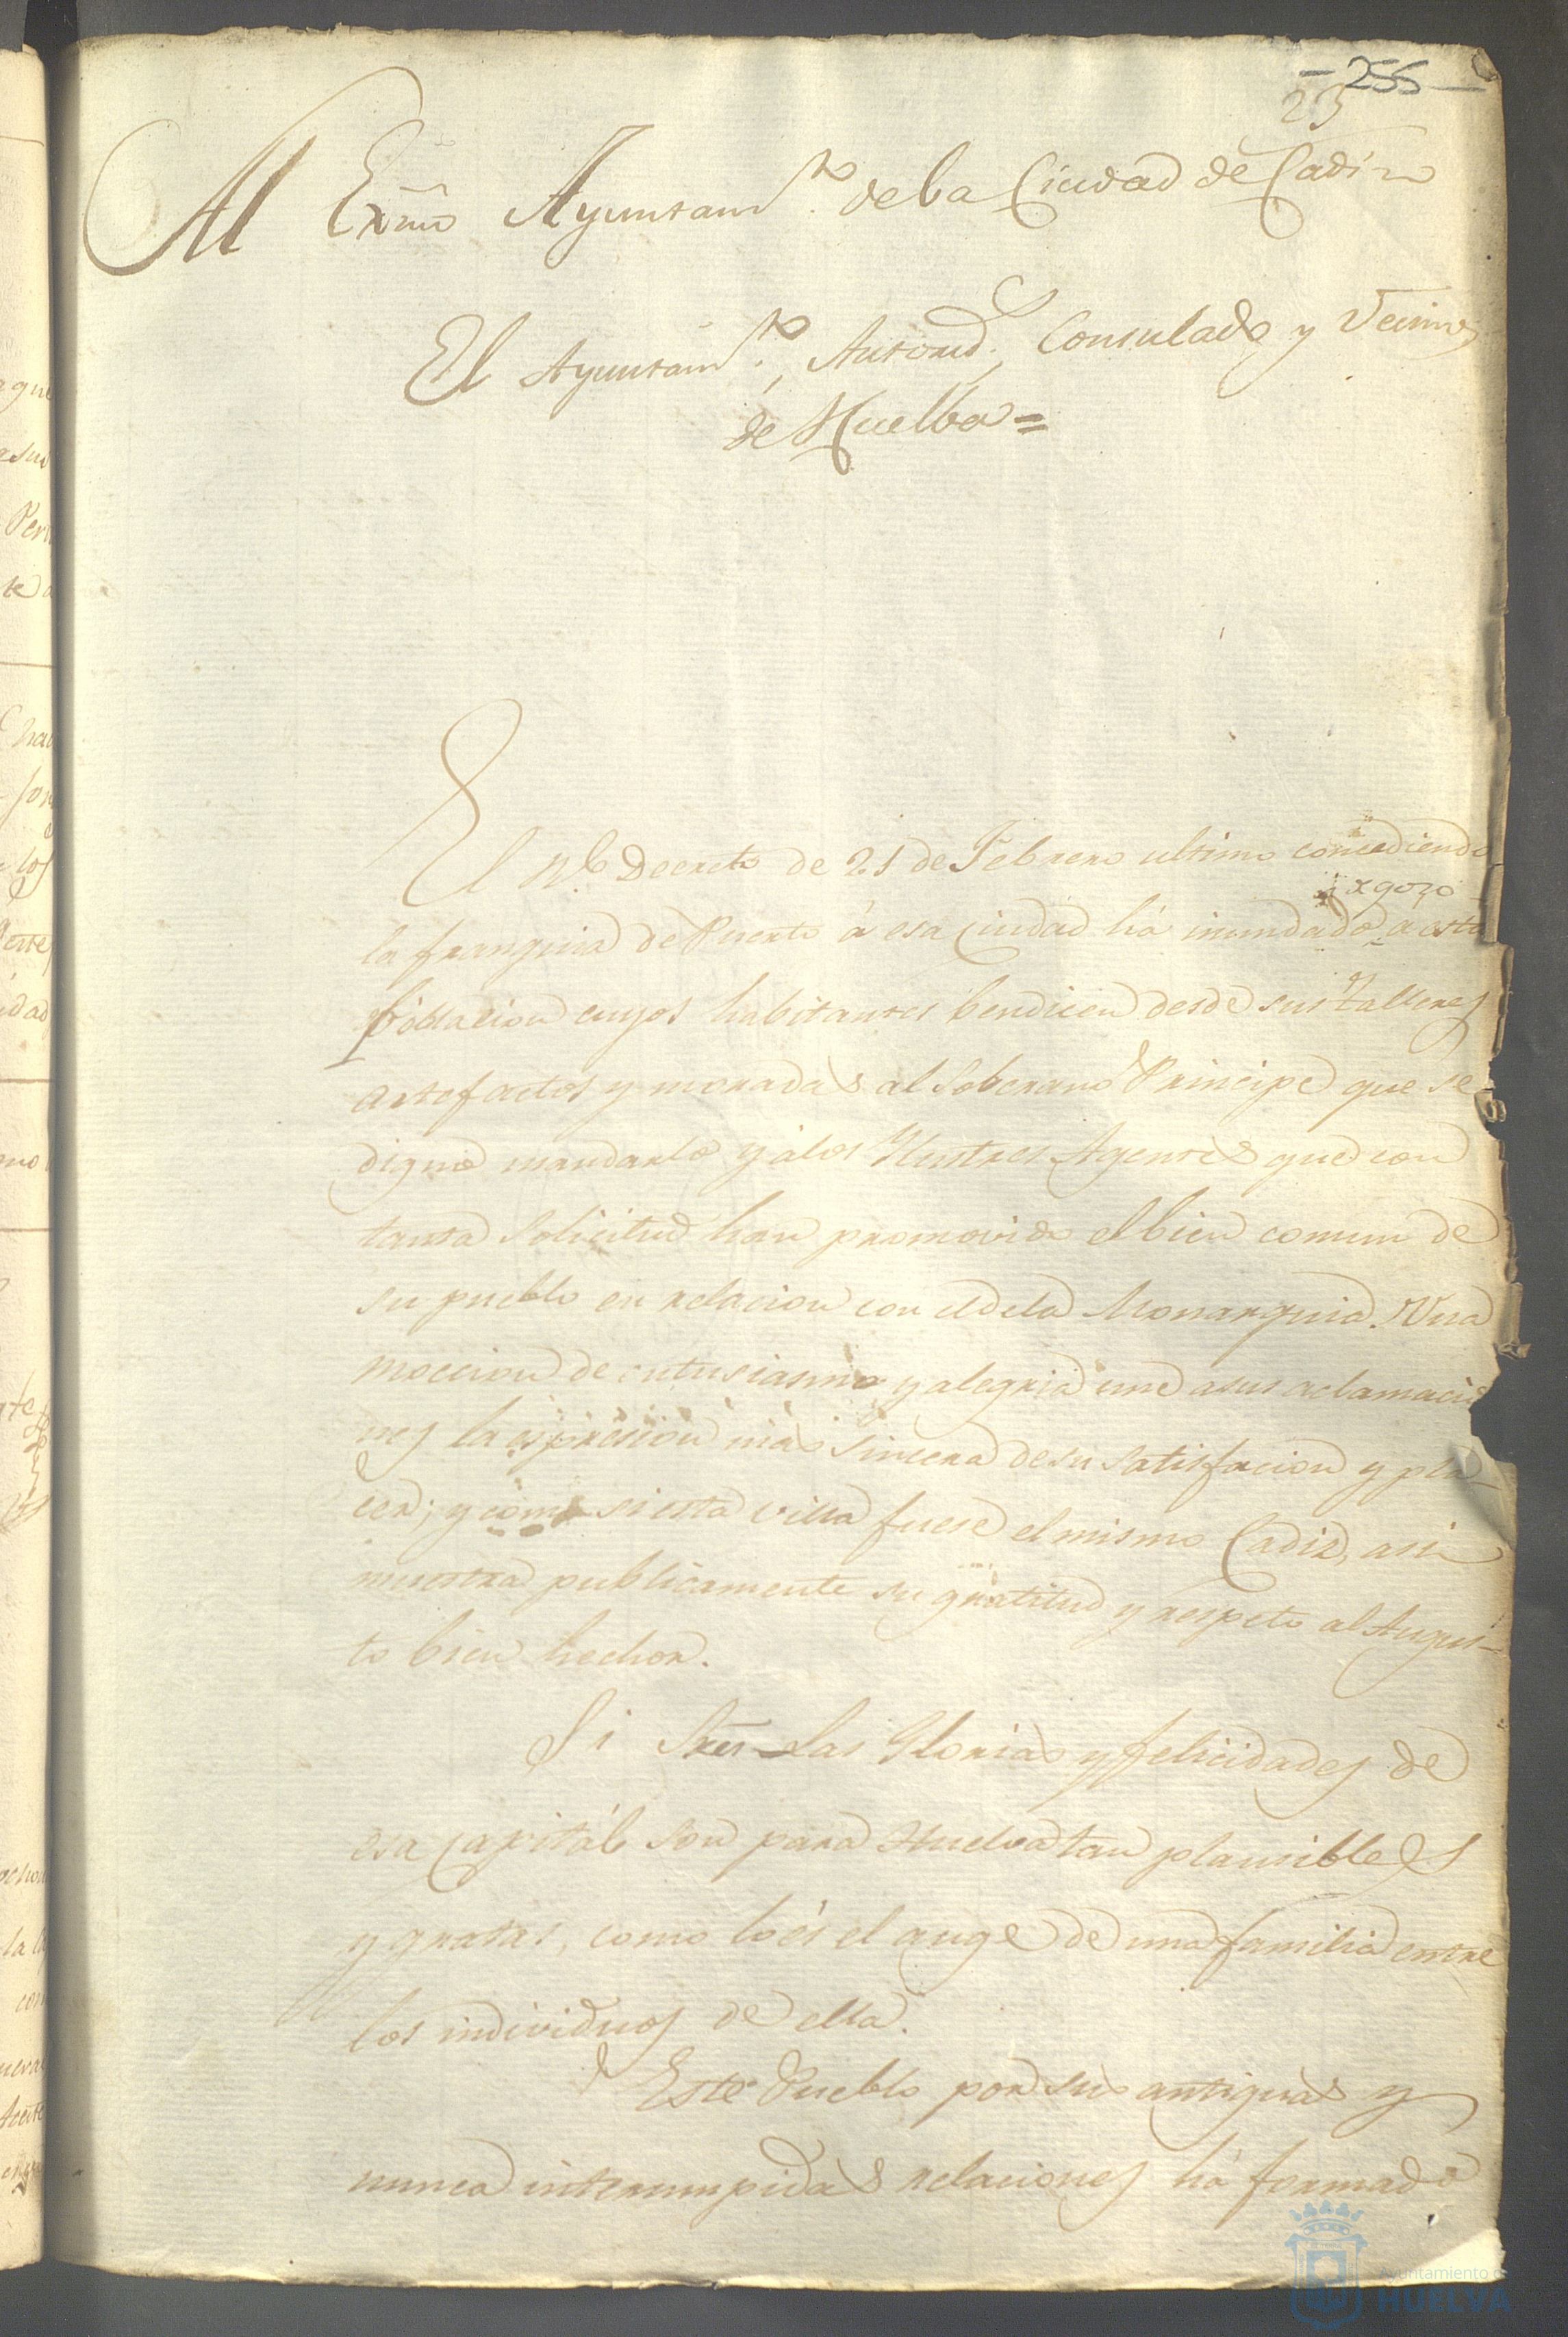 -256-
23
Al Exmô Ayuntamto. de la Ciudad de Cadiz
El Ayuntamto., Autorids., Consulado y Vecinos
de Huelba=
El Rl Decreto de 21 de Febrero ultimo concediendo
la franquicia de Puerto á esa Ciudad há inundado de gozo a esta
Poblacion cuyos habitantes bendicen desde sus talleres
artefactos y moradas al Soberano Principe que se
digno mandarlo y á los Ilustres Agentes que con
tanta solicitud han promovido el bien comun de
su pueblo en relacion con el de la Monarquia. Una
mocion de entusiasmo y alegria une a sus aclamacio
nes la espresion más sincera de su satisfacion y pla-
cer; y como si esta villa fuese el mismo Cadiz, asi
muestra publicamente su gratitud y respeto al Augus-
to bien hechor.
Si Sres las Glorias y felicidades de
esa Capitál son para Huelva tan plausibles
y gratas, como lo és el auge de una familia entre
los individuos de ella.
Este Pueblo por sus antiguas y
nunca interrumpidas relaciones há formado
Ayuntamiento de
HUELVA